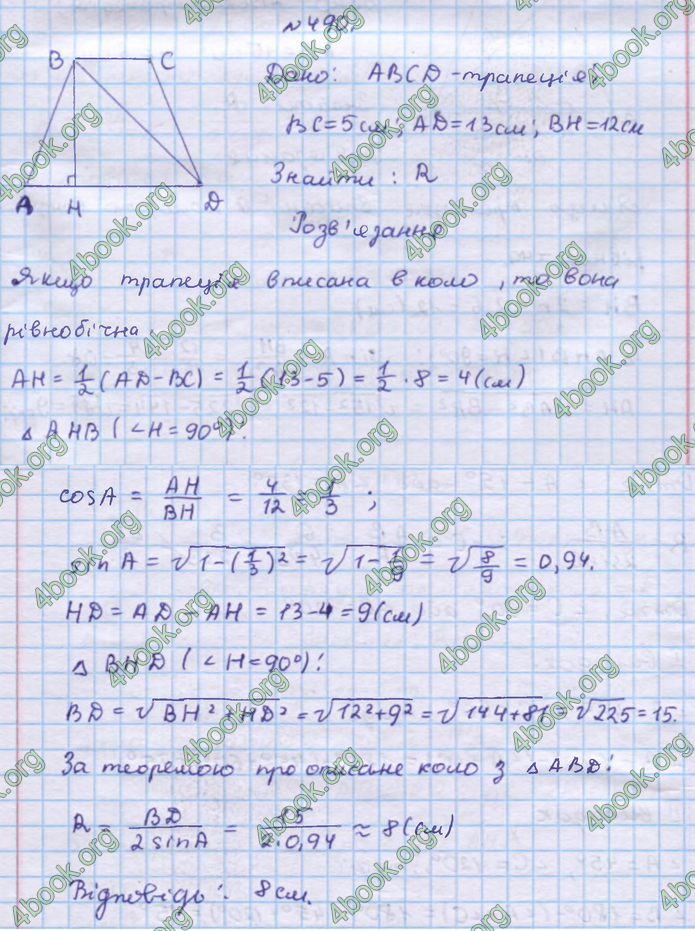 №490.
B C
Дано: ABCD - трапеція;
BC=5см; AD=13см; BH=12см
Знайти: R
A H D
Розв'язання
Якщо трапеція вписана в коло, то вона
рівнобічна.
AH = 1/2 (AD-BC) = 1/2 (13-5) = 1/2 · 8 = 4(см)
△ AHB (∠H=90°):
cosA = AH/BH = 4/12 = 1/3 ;
sin A = √(1-(1/3)²) = √(1-1/9) = √(8/9) = 0,94.
HD = AD - AH = 13-4 = 9(см)
△ BHD (∠H=90°):
BD = √(BH²+HD²) = √(12²+9²) = √(144+81) = √225 = 15.
За теоремою про описане коло з △ ABD:
R = BD/2sinA = 15/2·0,94 ≈ 8(см)
Відповідь: 8см.
4book.org